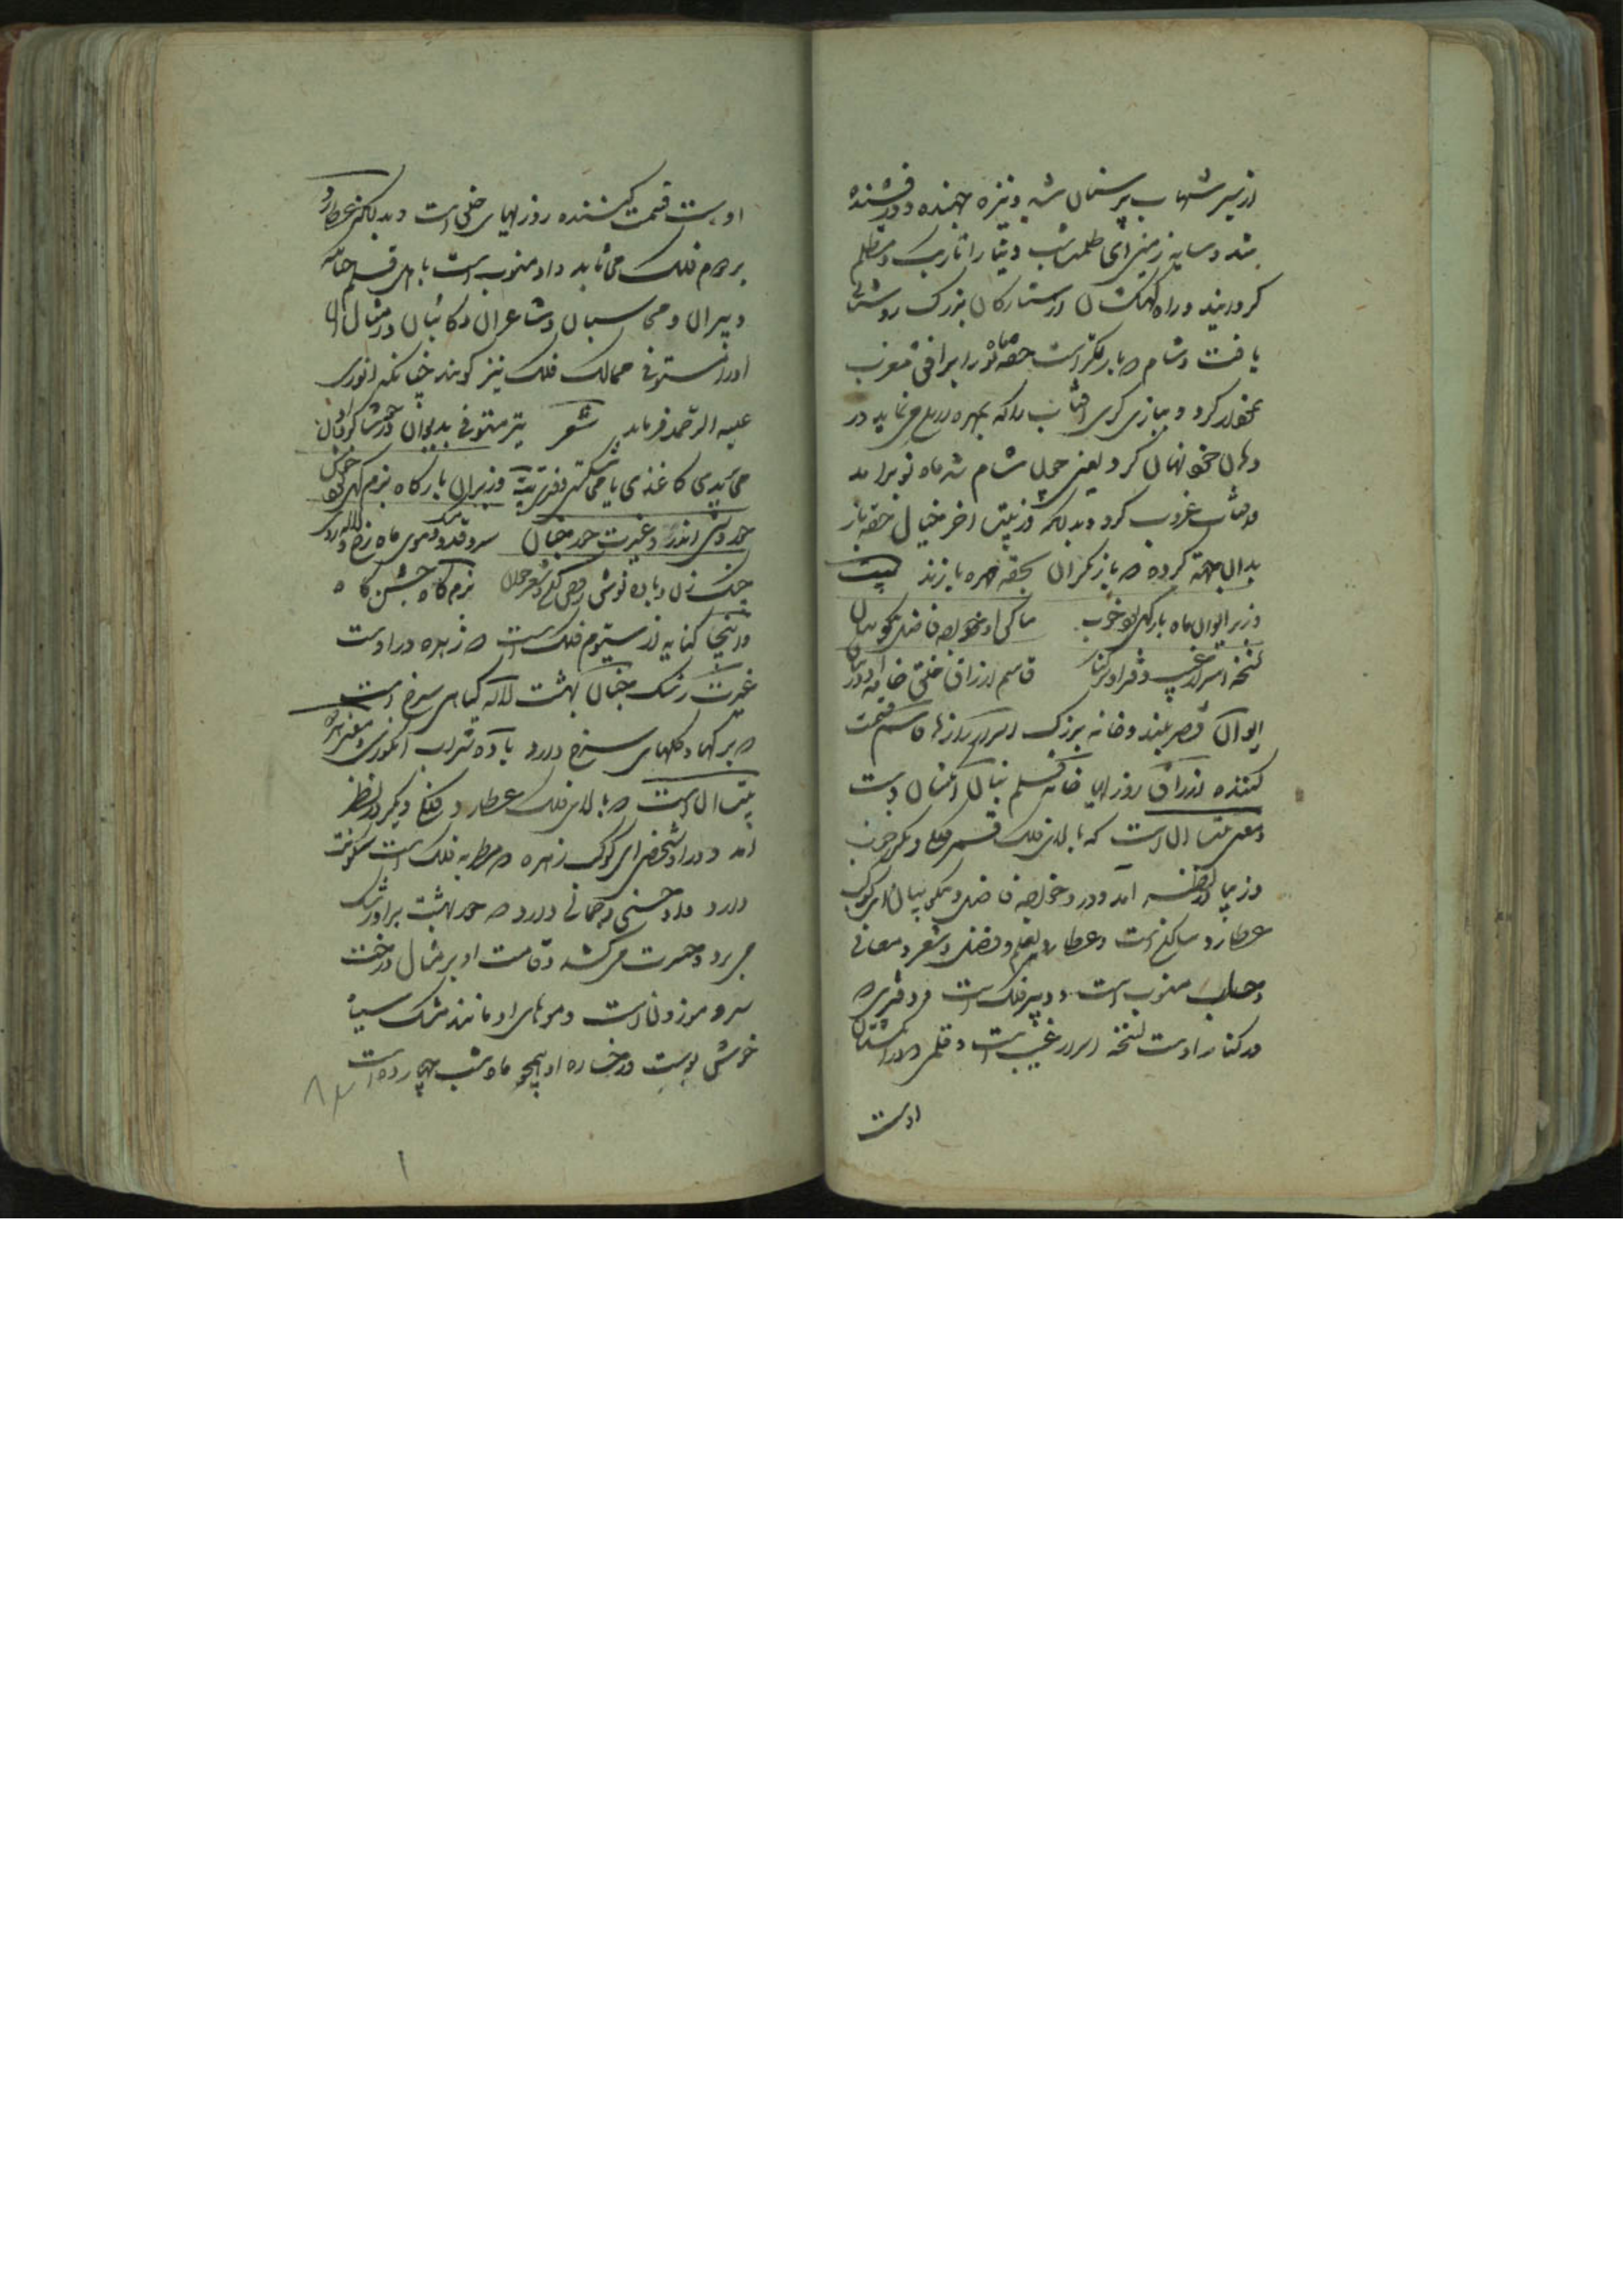 از سیر شهاب پر سنان شد و نیزه جهنده و درفشنده
شد و سایه زمین ای ظلمت شب دنیا را تاریک و مظلم
گردانید و راه کهکشان از ستارگان بزرگ روشنی
یافت و شام که بازیگر است حقه ماه نو را بر افق مغرب
نمودار کرد و ببازی گری آفتاب را که مهره می نماید در
دهان خود نهان کرد یعنی چون شام شد ماه نو برآمد
و آفتاب غروب کرد و بدانکه در بیت آخر خیال حقه باز
بدان جهة کرده که بازیگران بحقه مهره بازند بیت
زیر ایوان ماه بارگهی بود خوب ساکن او خواجه فاضل نکو بیان
نسخه اسرار غیب دفتر او در کنار قاسم ارزاق خلق خامه او در بنان
ایوان قصر بلند و خانه بزرگ اسرار رازها قاسم قسمت
کننده ارزاق روزیها خامه قلم بنان انگشتان دست
و معنی بیت آن است که بالای فلک قمر کاخ دیگر خوب
و زیبا در نظر آمد و درو خواجه فاضل و نکو بیان ای کوکب
عطارد ساکن است و عطارد بعلم و فضل و شعر و معانی
و حساب منسوب است و دبیر فلک است و دفتری که
در کنار اوست نسخه اسرار غیب است و قلمی که در انگشتان
اوست
اوست قسمت کننده روزیهای خلق است و بدانکه عطارد
بر دوم فلک می تابد و او منسوب است با اهل قلم خاصه
دبیران و محاسبان و شاعران و کاتبان و امثال آن
او را مستوفی ممالک فلک نیز گویند چنانکه انوری
علیه الرحمه فرماید شعر تیر مستوفی بدیوان در چو شاگردان او
می بدی کاغذی یا می شکستی دفتری بیت زیر آن بارگاه بزم گهی بود خوش
حور وشی اندرو غیرت حور جنان سرو قد و مشک موی ماه رخ و لاله روی
چنگ زن و باده نوش رقص کن و شعر خوان بزم گاه جشن گاه
و اینجا کنایه از سیوم فلک است که زهره در اوست
غیرت رشک جنان بهشت لاله گیاهی سرخ است
که برگها و گلهای سرخ دارد باده شراب انگوری و معنی
بیت آن است که بالای فلک عطارد کاخ دیگر در نظر
آمد و درو شخصی ای کوکب زهره که مطربه فلک است سکونت
دارد و او حسنی و جمالی دارد که حور بهشت بر او رشک
می برد و حسرت می کشد و قامت او بر مثال درخت
سرو موزون است و موهای او مانند مشک سیاه
خوش بوست و رخساره او همچو ماه شب چهارده است